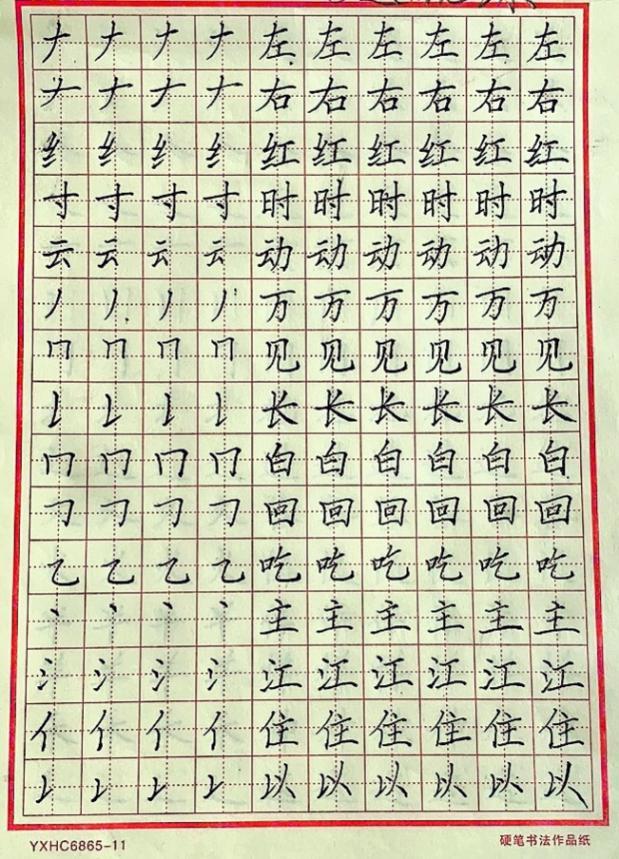 𠂇 𠂇 𠂇 𠂇 左 左 左 左 左 左
𠂇 𠂇 𠂇 𠂇 右 右 右 右 右 右
纟 纟 纟 纟 红 红 红 红 红 红
寸 寸 寸 寸 时 时 时 时 时 时
云 云 云 云 动 动 动 动 动 动
丿 丿 丿 丿 万 万 万 万 万 万
冂 冂 冂 冂 见 见 见 见 见 见
𠄌 𠄌 𠄌 𠄌 长 长 长 长 长 长
冂 冂 冂 冂 白 白 白 白 白 白
𠃌 𠃌 𠃌 𠃌 回 回 回 回 回 回
乙 乙 乙 乙 吃 吃 吃 吃 吃 吃
丶 丶 丶 丶 主 主 主 主 主 主
氵 氵 氵 氵 江 江 江 江 江 江
亻 亻 亻 亻 住 住 住 住 住 住
以 以 以 以 以 以
YXHC6865-11 硬笔书法作品纸